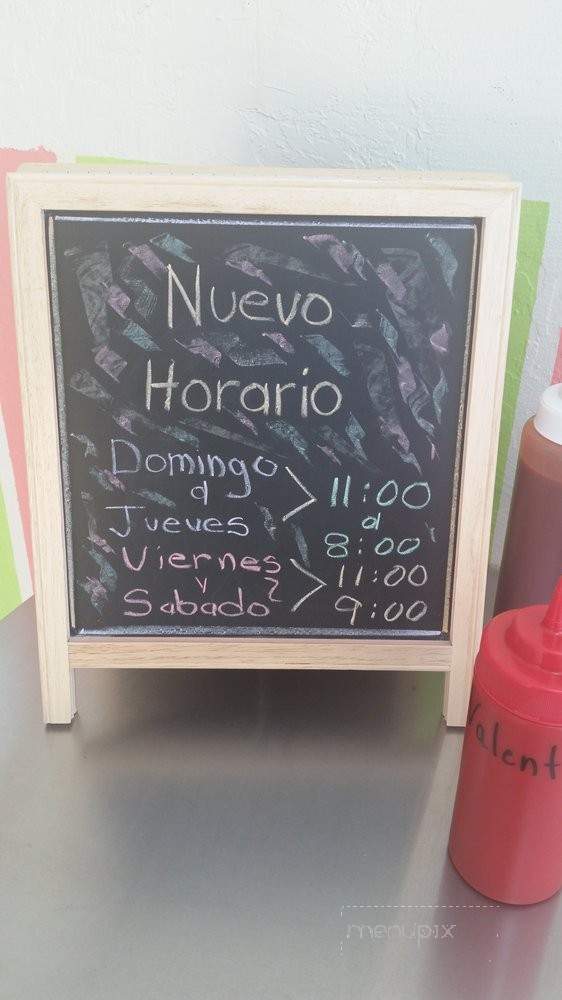 Nuevo
Horario
Domingo
a
Jueves
11:00
a
8:00
Viernes
y
Sabado
11:00
9:00
Valent
menupix